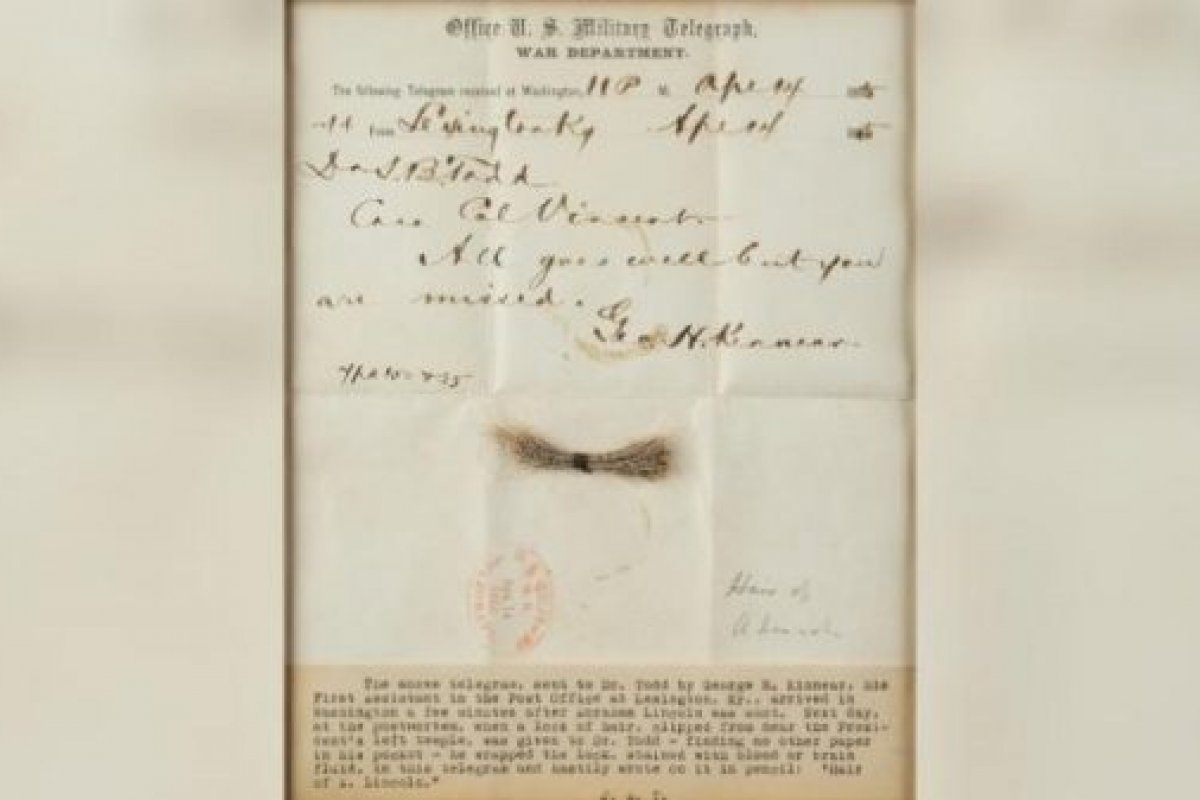 Office U. S. Military Telegraph,
WAR DEPARTMENT.
The following Telegram received at Washington, 11 P M. Apr 14 1865
From Lexington Ky Apr 14 1865
Dr L. B. Todd
Care Col Vincent
All goes well but you
are missed.
Geo H. Kinnear
Hair of
A Lincoln
The above telegram, sent to Dr. Todd by George H. Kinnear, his
First Assistant in the Post Office at Lexington, Ky., arrived in
Washington a few minutes after Abraham Lincoln was shot. Next day,
at the postmortem, when a lock of hair, clipped from near the Presi-
dent's left temple, was given to Dr. Todd - finding no other paper
in his pocket - he wrapped the lock, stained with blood or brain
fluid, in this telegram and hastily wrote on it in pencil: "Hair
of A. Lincoln."